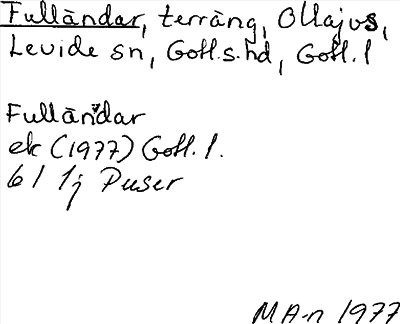 Fulländar, terräng, Ollajvs,
Levide sn, Gotl.s.hd, Gotl. l
Fulländar
ek (1977) Gotl. l.
6 I 1j Puser
MA-n 1977